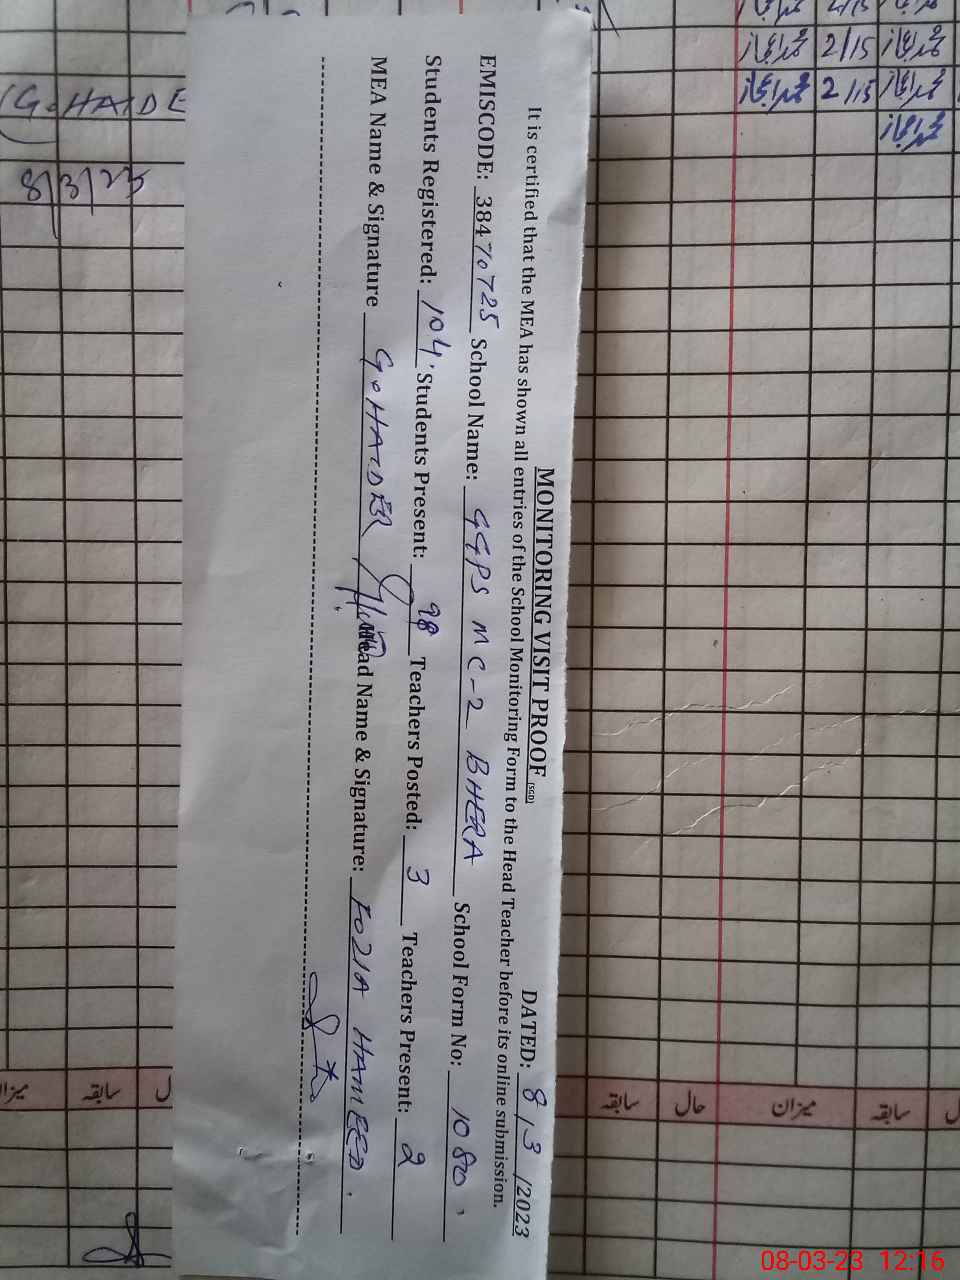 MONITORING VISIT PROOF (SGD) DATED: 8/3/2023
It is certified that the MEA has shown all entries of the School Monitoring Form to the Head Teacher before its online submission.
EMISCODE: 38470725 School Name: GGPS MC-2 BHERA School Form No: 1080
Students Registered: 104 Students Present: 98 Teachers Posted: 3 Teachers Present: 2
MEA Name & Signature G.HAIDER Head Name & Signature: FOZIA HAMEED.
G.HAIDE
8/3/23
2/15
2/15
2/15
میزان سابقہ
سابقہ حال میزان سابقہ
08-03-23 12:16